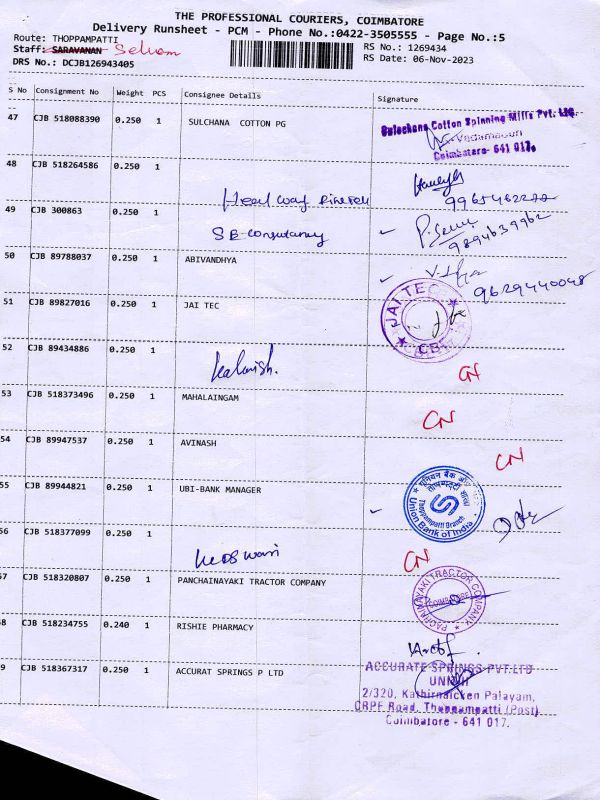 THE PROFESSIONAL COURIERS, COIMBATORE
Delivery Runsheet - PCM - Phone No.:0422-3505555 - Page No.:5
Route: THOPPAMPATTI
RS No.: 1269434
Staff: SARAVANAN Selvam
RS Date: 06-Nov-2023
DRS No.: DCJB126943405
S No Consignment No Weight PCS Consignee Details Signature
47 CJB 518088390 0.250 1 SULCHANA COTTON PG
Sulochana Cotton Spinning Mills Pvt. Ltd.
Coimbatore- 641 017.
48 CJB 518264586 0.250 1
9965462277
49 CJB 300863 0.250 1 SB-Consultancy
9894639962
50 CJB 89788037 0.250 1 ABIVANDHYA
9629440048
51 CJB 89827016 0.250 1 JAI TEC
JAI TEC
CBE
52 CJB 89434886 0.250 1
CN
53 CJB 518373496 0.250 1 MAHALAINGAM
CN
54 CJB 89947537 0.250 1 AVINASH
CN
55 CJB 89944821 0.250 1 UBI-BANK MANAGER
Thoppampatti Branch
Union Bank of India
56 CJB 518377099 0.250 1
CN
57 CJB 518320807 0.250 1 PANCHAINAYAKI TRACTOR COMPANY
COIMBATORE
58 CJB 518234755 0.240 1 RISHIE PHARMACY
59 CJB 518367317 0.250 1 ACCURAT SPRINGS P LTD
ACCURATE SPRINGS PVT.LTD
2/320, Kathirnaicken Palayam,
CRPF Road, Thoppampatti (Post)
Coimbatore - 641 017.